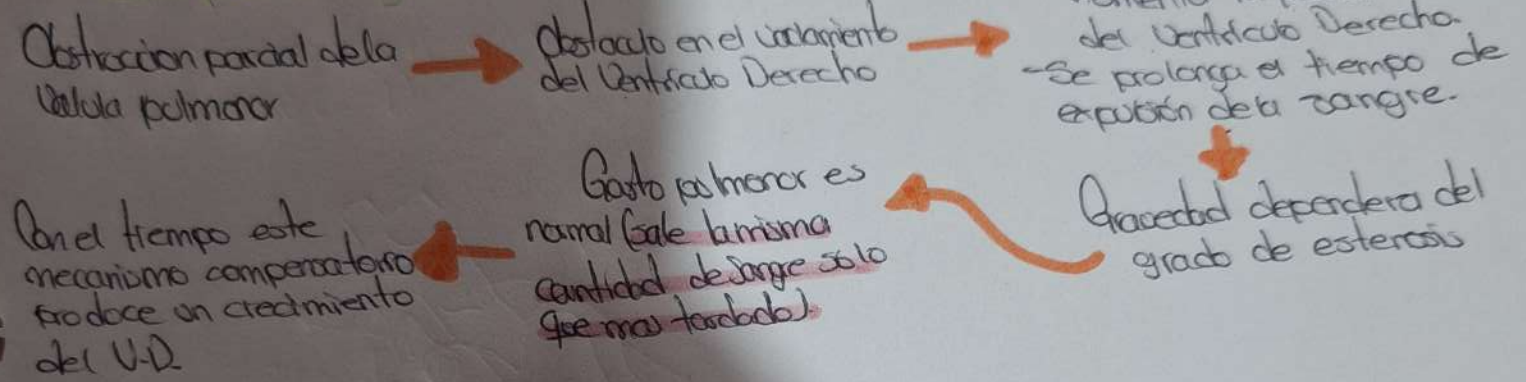 Obstruccion parcial de la
Valvula pulmonar
Obstaculo en el vaciamiento
del Ventriculo Derecho
del Ventriculo Derecho.
-Se prolonga el tiempo de
expulsión de la sangre.
Gravedad dependera del
grado de estenosis
Gasto pulmonar es
normal (sale la misma
cantidad de sangre solo
que mas tardado).
Con el tiempo este
mecanismo compensatorio
produce un crecimiento
del V.D.